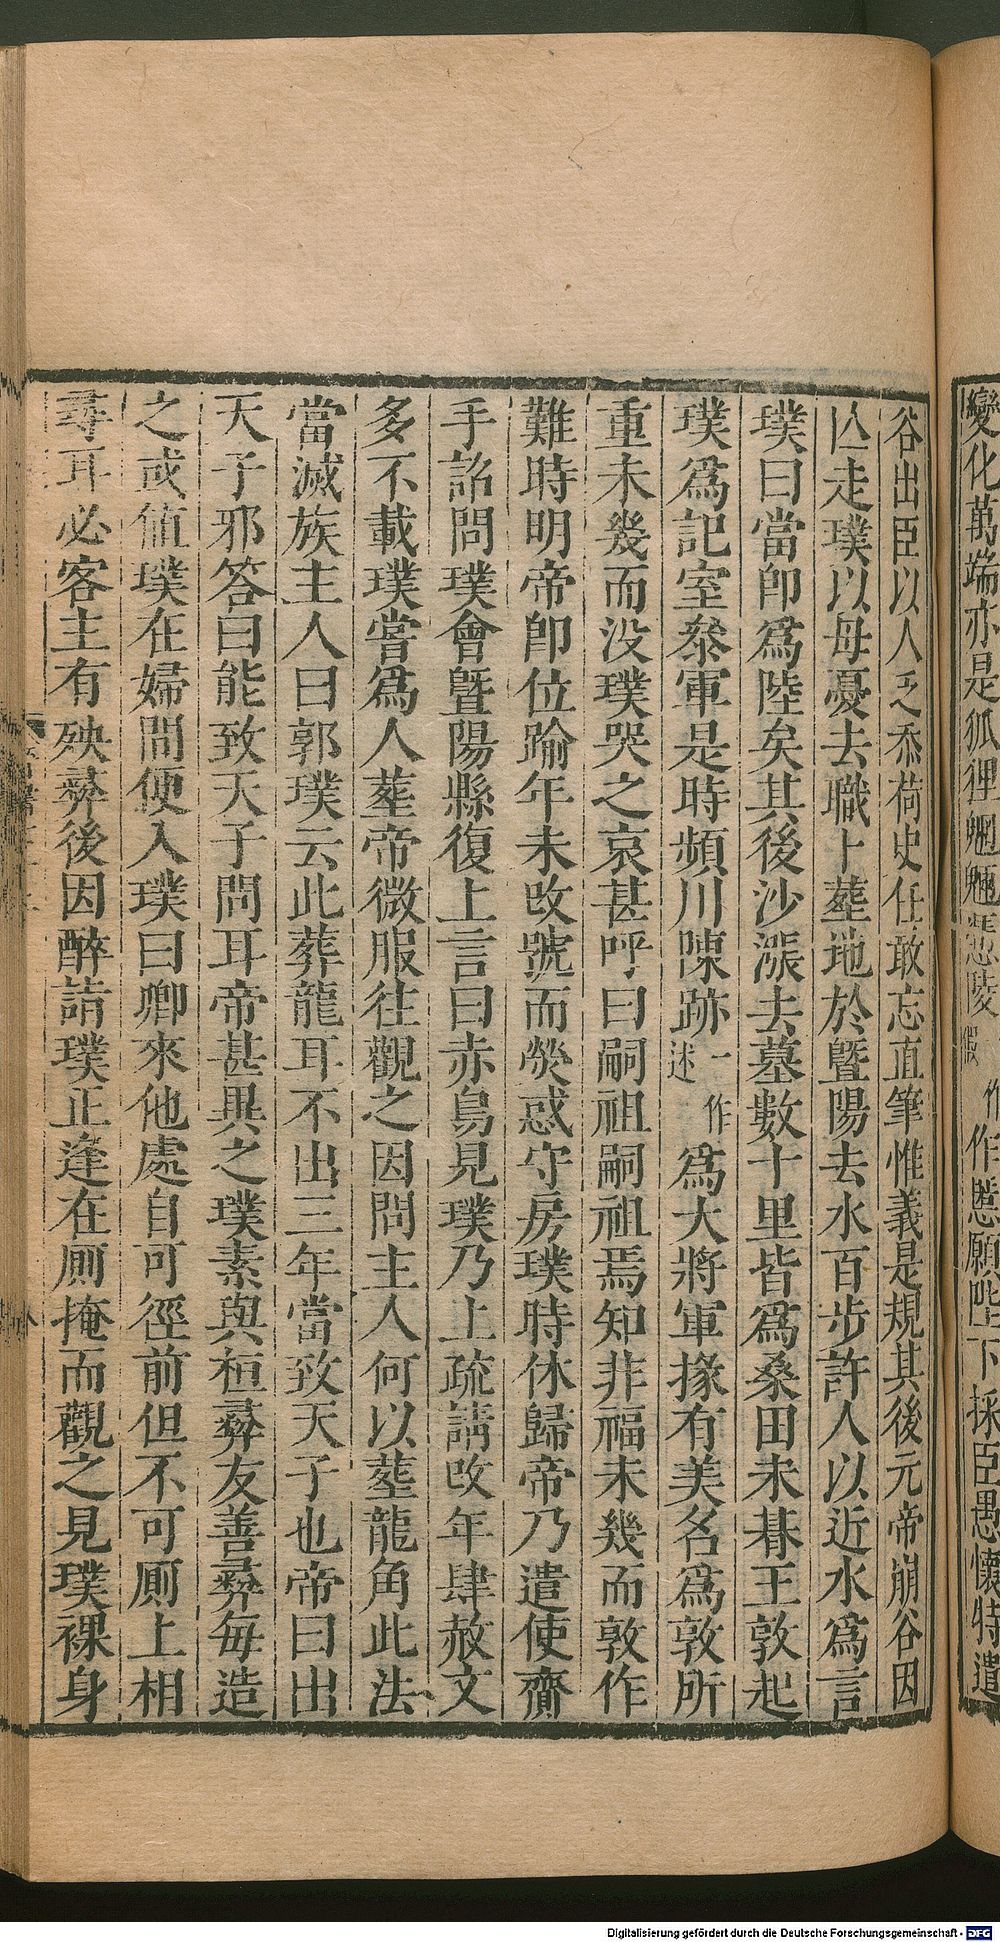 變化萬端亦是狐狸魍魎憑陵作慝願陛下採臣愚懷特遣
谷出臣以人乏忝荷史任敢忘直筆惟義是規其後元帝崩谷因
亾走璞以母憂去職卜葬地於暨陽去水百步許人以近水爲言
璞曰當卽爲陸矣其後沙漲去墓數十里皆爲桑田未朞王敦起
璞爲記室叅軍是時頻川陳跡一作述爲大將軍掾有美名爲敦所
重未幾而没璞哭之哀甚呼曰嗣祖嗣祖焉知非福未幾而敦作
難時明帝卽位踰年未改號而熒惑守房璞時休歸帝乃遣使齎
手詔問璞會暨陽縣復上言曰赤烏見璞乃上疏請改年肆赦文
多不載璞嘗爲人葬帝微服往觀之因問主人何以葬龍角此法
當滅族主人曰郭璞云此葬龍耳不出三年當致天子也帝曰出
天子邪答曰能致天子問耳帝甚異之璞素與桓彝友善彝每造
之或值璞在婦間便入璞曰卿來他處自可徑前但不可厠上相
尋耳必客主有殃彝後因醉詣璞正逢在厠掩而觀之見璞裸身
Digitalisierung gefördert durch die Deutsche Forschungsgemeinschaft - DFG